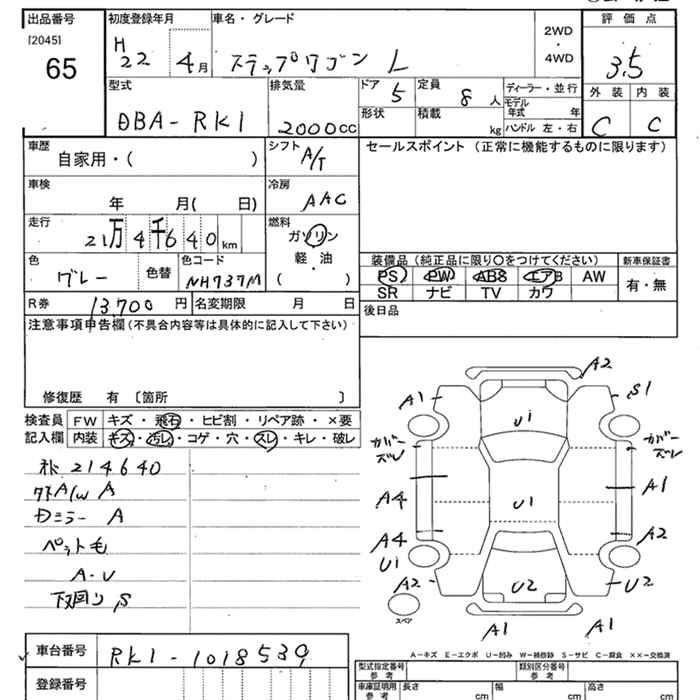 出品番号
[2045]
65
初度登録年月
H
22 4月
車名・グレード
ステップワゴン L
2WD
・
4WD
評価点
3.5
外装 内装
C C
型式
DBA-RK1
排気量
2000cc
ドア 5
形状
定員 8人
積載 kg
ディーラー・並行
モデル年式 年
ハンドル 左・右
車歴
自家用・( )
シフト
A/T
セールスポイント (正常に機能するものに限ります)
車検
年 月( 日)
冷房
AAC
走行
21万4千640km
燃料
ガソリン
軽・油
( )
色
グレー
色替
色コード
NH737M
装備品(純正品に限り○をつけてください)
PS PW ABS エアB AW
SR ナビ TV カワ
新車保証書
有・無
R券 13,700円
名変期限 月 日
後日品
注意事項申告欄(不具合内容等は具体的に記入して下さい)
修復歴 有 〔箇所 〕
検査員
記入欄
FW キズ・飛石・ヒビ割・リペア跡・×要
内装 キズ・汚レ・コゲ・穴・スレ・キレ・破レ
214640
A/W A
Dミラー A
ペット毛
A・U
下回り S
A2
A1
S1
U1
カバーズレ
カバーズレ
A4
U1
A1
A4
U1
A2
A2
U2
U2
スペア
A1
A1
A-キズ E-エクボ U-凹み W-補修跡 S-サビ C-腐食 ××-交換済
車台番号
RK1-1018539
登録番号
型式指定番号
参考
類別区分番号
参考
車庫証明用
参考
長さ cm
幅 cm
高さ cm